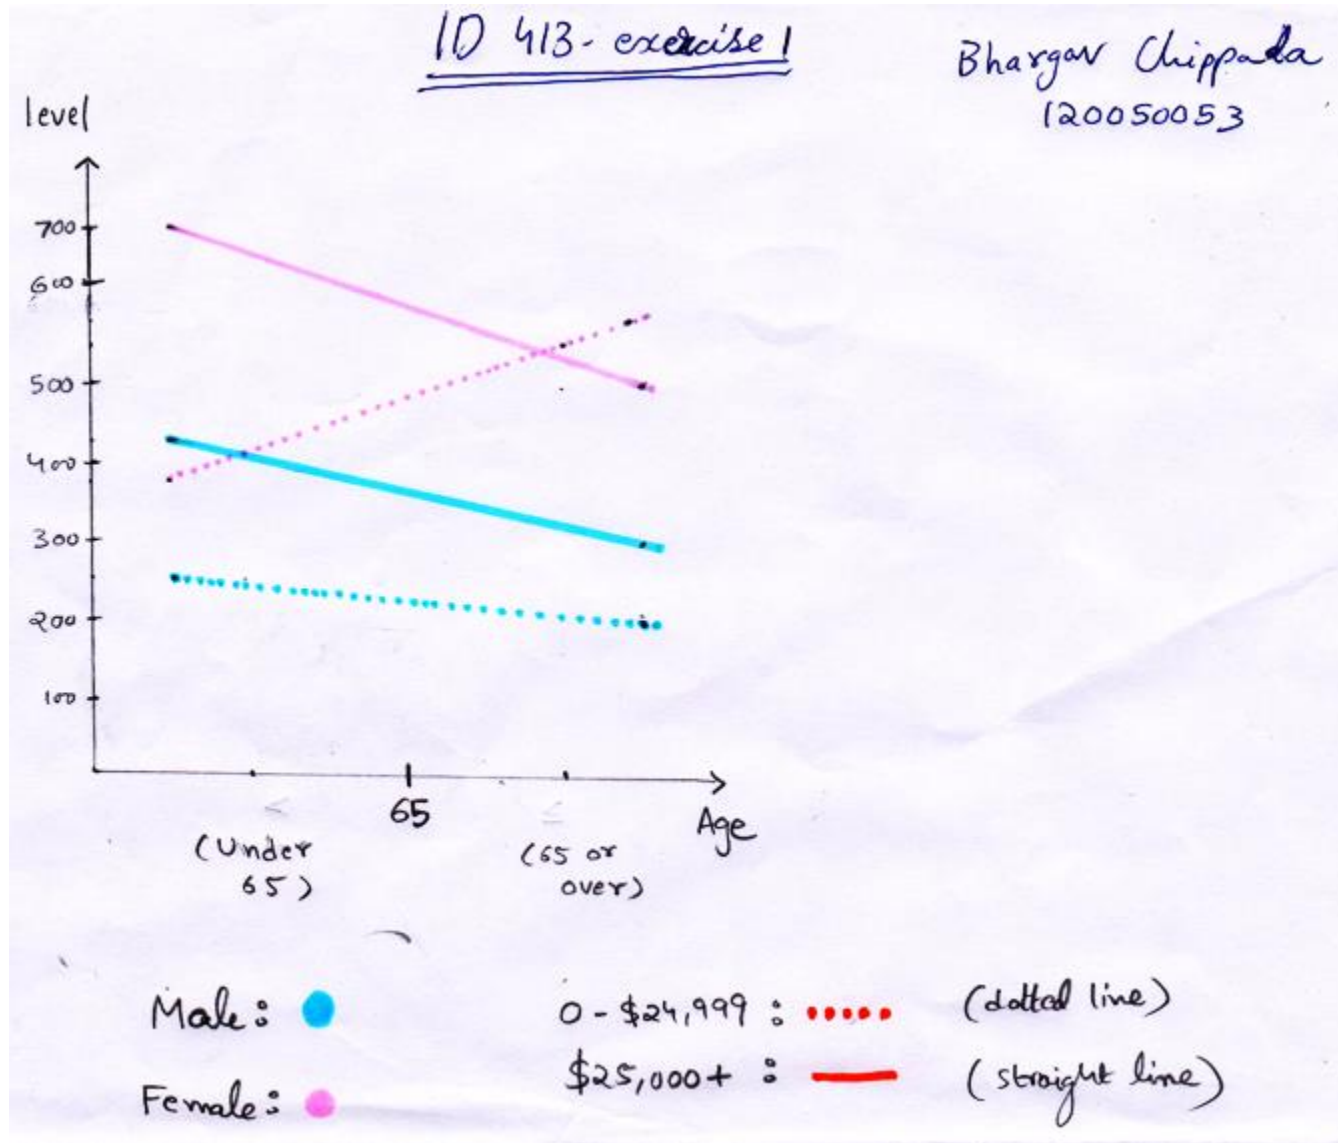 ID 413 - exercise 1
Bhargav Chippada
120050053
level
700
600
500
400
300
200
100
65
Age
(Under
65)
(65 or
over)
Male:
0 - $24,999 : (dotted line)
$25,000+ : (straight line)
Female: